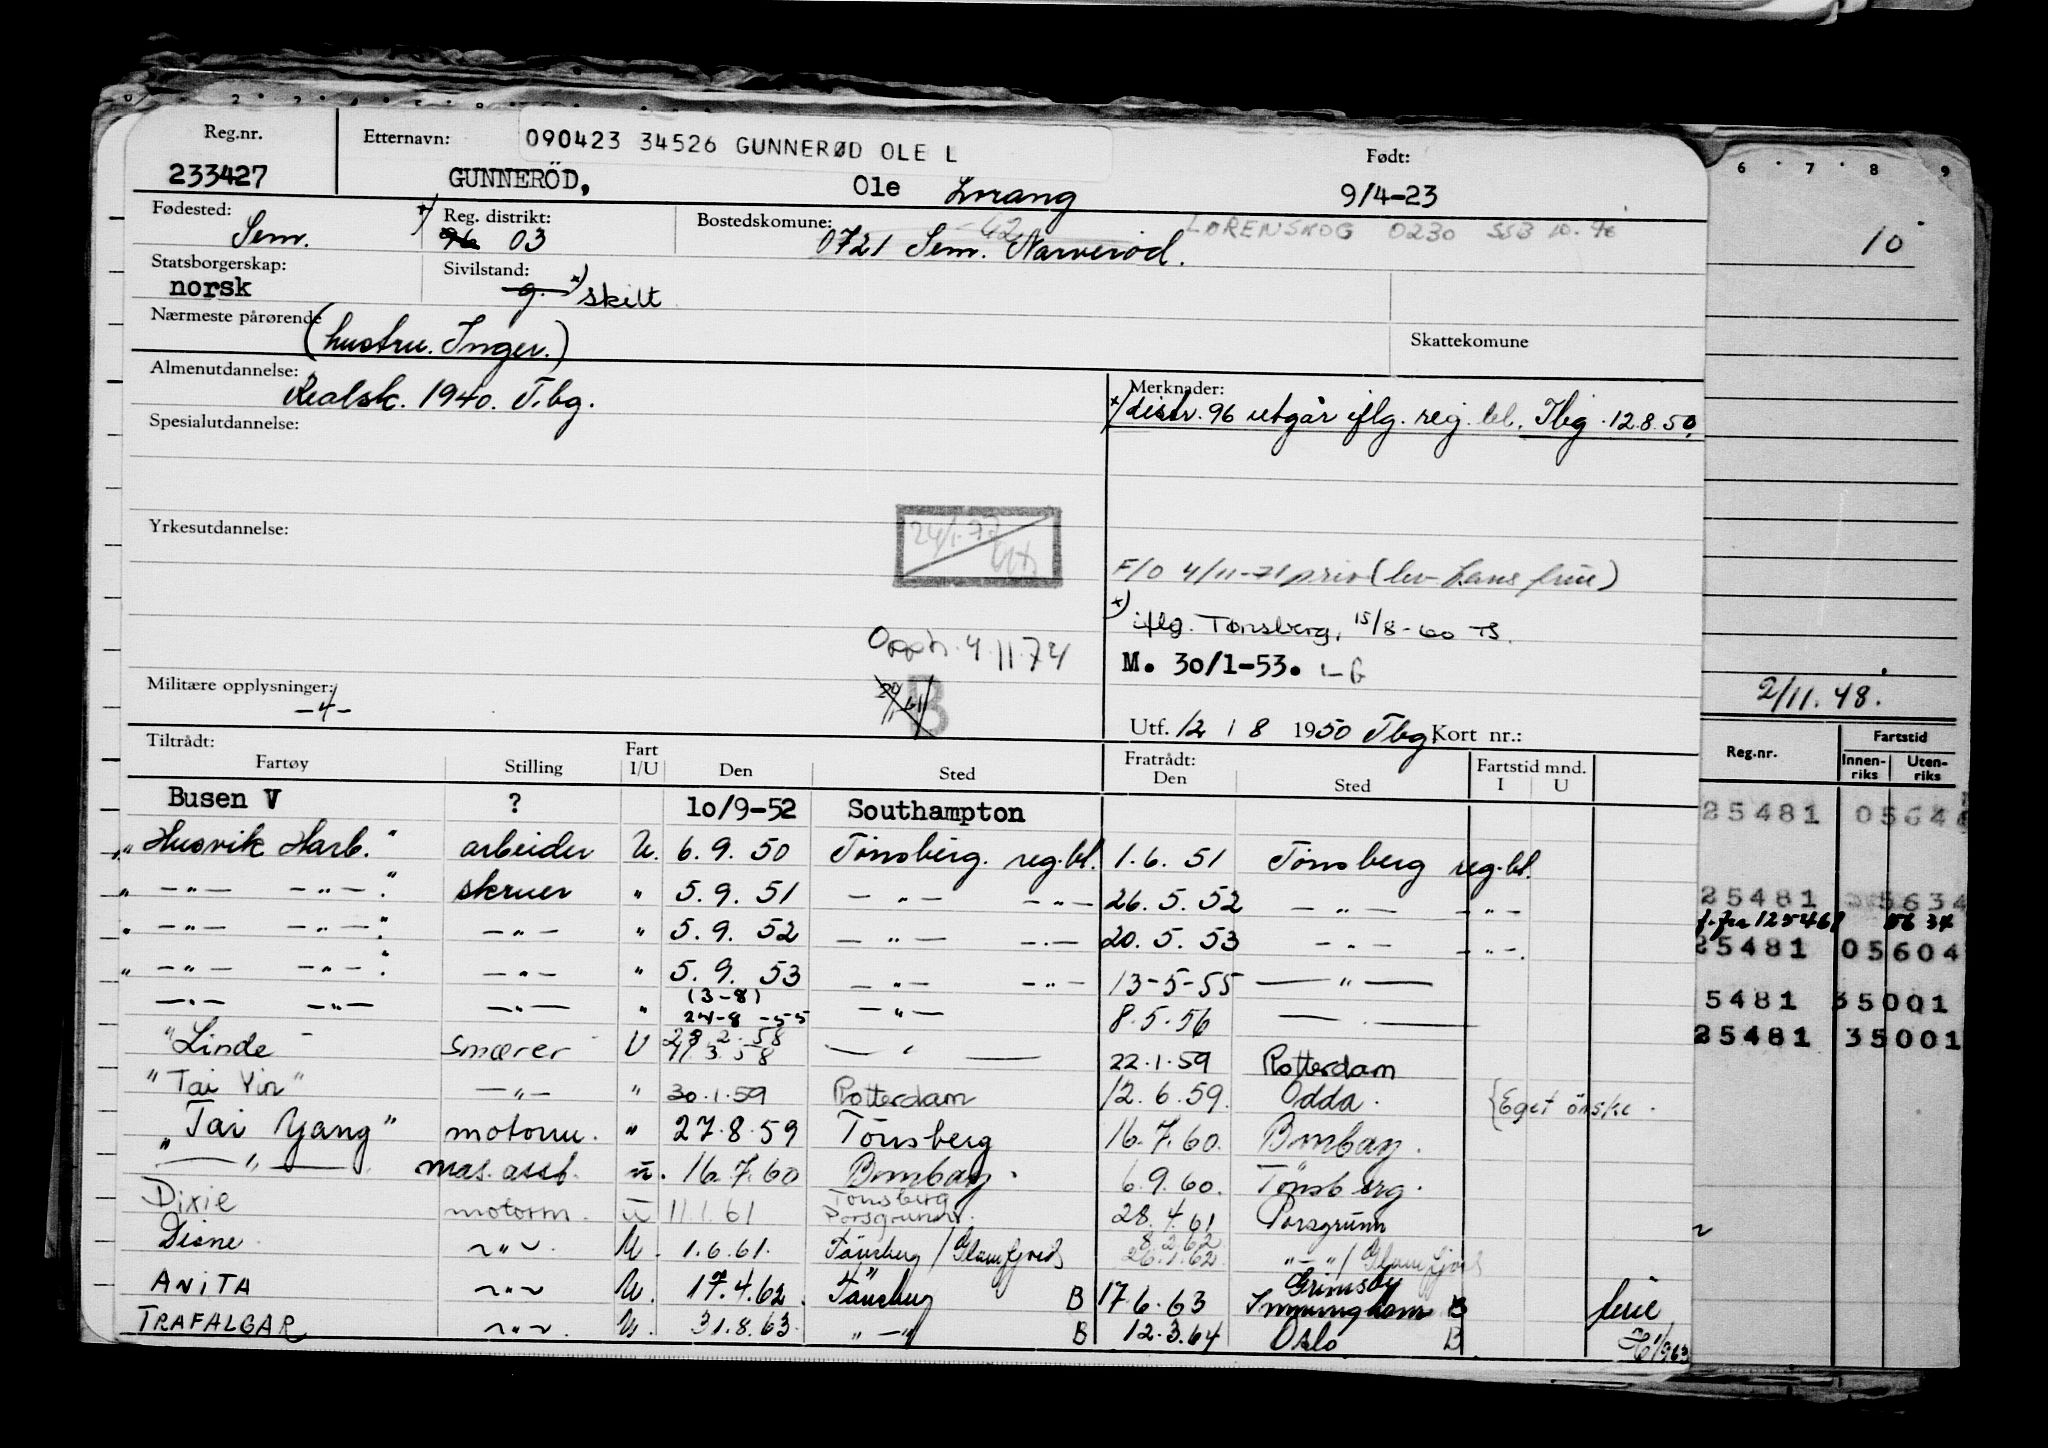 Reg.nr. Etternavn: 090423 34526 GUNNERØD OLE L Født:
233427 GUNNERÖD, Ole Lorang 9/4-23
Fødested: Reg. distrikt: Bostedskomune: LØRENSKOG 0230 SSB 10.
Sem. x) 96 03 0721 Sem. Narverød. 10
Statsborgerskap: Sivilstand:
norsk g. x) skilt
Nærmeste pårørende
(hustru. Inger.) Skattekomune
Almenutdannelse: Merknader:
Realsk. 1940. T.bg. x) distr. 96 utgår iflg. reg. bl. Tbg. 12.8.50,
Spesialutdannelse:
Yrkesutdannelse: 24/1-77
F/O 4/11-71 priv
x) iflg. Tønsberg, 15/8-60 TS.
Opph. 4.11.74 M. 30/1-53. LG
Militære opplysninger: B
-4- 2/11.48.
Utf. 12 / 8 1950 Tbg. Kort nr.:
Tiltrådt: Fratrådt: Reg.nr. Fartstid
Fartøy Stilling Fart I/U Den Sted Den Sted Fartstid mnd. I U Innen-riks Uten-riks
Busen V ? 10/9-52 Southampton 25481 0564
"Husvik Harb." arbeider U. 6.9.50 Tönsberg. reg.bl. 1.6.51 Tönsberg reg.bl.
" -"- -"-" skruer " 5.9.51 -"- -"- 26.5.52 -"- -"- 25481 05634
" -"- -"-" -"- " 5.9.52 -"- -"- 20.5.53 -"- -"- 25481 05604
" -"- -"-" -"- " 5.9.53 -"- -"- 13-5-55 -"- 5481 35001
-"- -"- -"- " (3-8) 24-8-55 -"- 8.5.56 - - 25481 35001
"Linde" smører U 1/3.58 -"- 22.1.59 Rotterdam
"Tai Yin" -"- " 30.1.59 Rotterdam 12.6.59. Odda. {Eget ønske.
"Tai Yang" motorm. " 27.8.59 Tönsberg 16.7.60. Bombay.
-"- mas. asst. u. 16.7.60 Bombay. 6.9.60. Tönsberg.
Dixie motorm. u 11.1.61 Tønsberg Porsgrunn. 28.4.61 Porsgrunn
Diane -"- U. 1.6.61. Tönsberg / Glomfjord 8.2.62 26.1.62 "-" / Glomfjord
ANITA -"- U. 17.4.62. Tönsberg B 17 6.63 Grimsby Immingham B ferie
TRAFALGAR -"- U. 31.8.63. "-" B 12.3.64 Oslo B